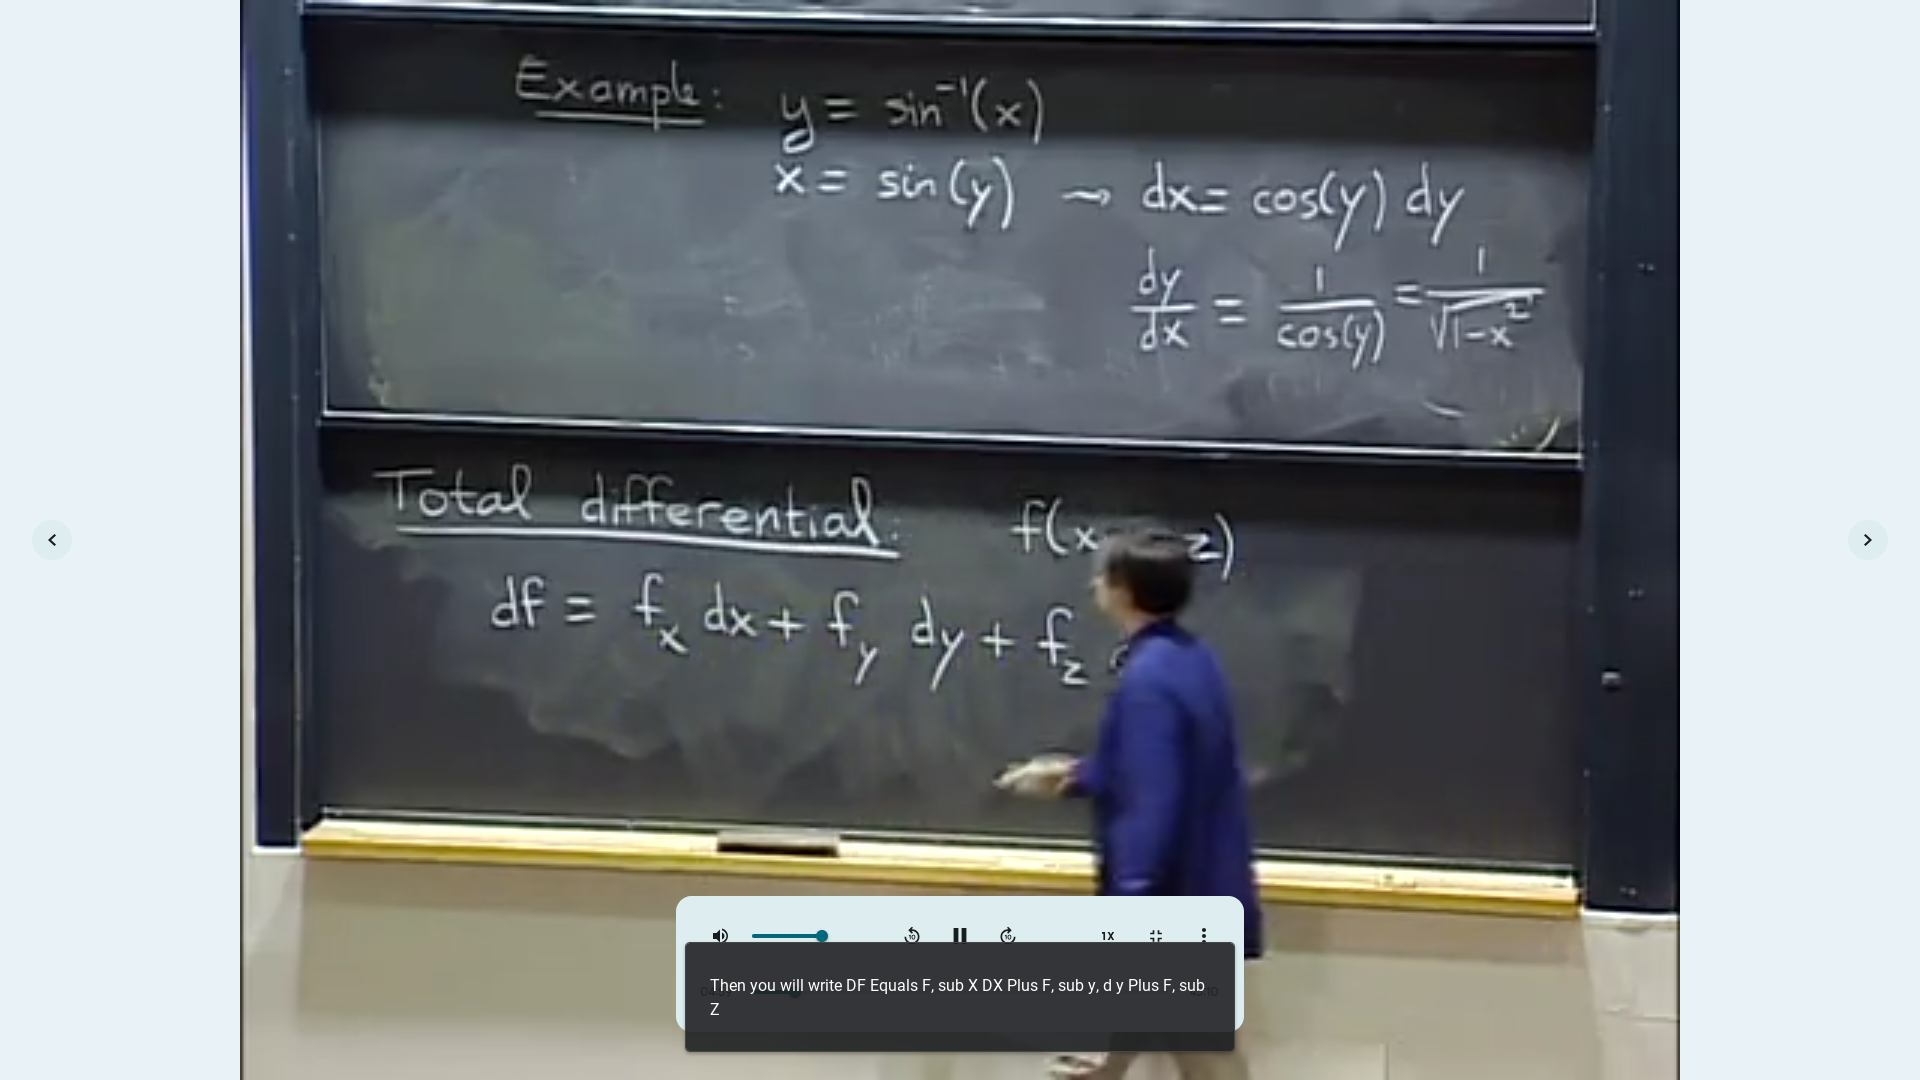 Example: y = sin⁻¹(x)
x = sin(y) → dx = cos(y) dy
dy/dx = 1/cos(y) = 1/√(1-x²)
Total differential: f(x z)
df = f_x dx + f_y dy + f_z
1X
Then you will write DF Equals F, sub X DX Plus F, sub y, d y Plus F, sub
Z